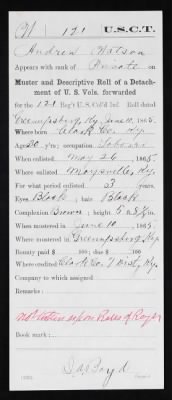 CN 121 U.S.C.T.
Andrew Watson
Appears with rank of Private on
Muster and Descriptive Roll of a Detach-
ment of U. S. Vols. forwarded
for the 121 Reg't U.S. Col'd Inf. Roll dated
Greenupsburg, Ky, June 10, 1865.
Where born Clark Co. Ky.
Age 30 y'rs; occupation Laborer
When enlisted May 26, 1865.
Where enlisted Maysville, Ky.
For what period enlisted 3 years.
Eyes Black; hair Black
Complexion Brown; height 5 ft. in.
When mustered in June 10, 1865.
Where mustered in Greenupsburg, Ky.
Bounty paid $ 100; due $ 100
Where credited Clark Co. Dist, Ky.
Company to which assigned
Remarks:
not taken upon Rolls of
Book mark:
Boyd